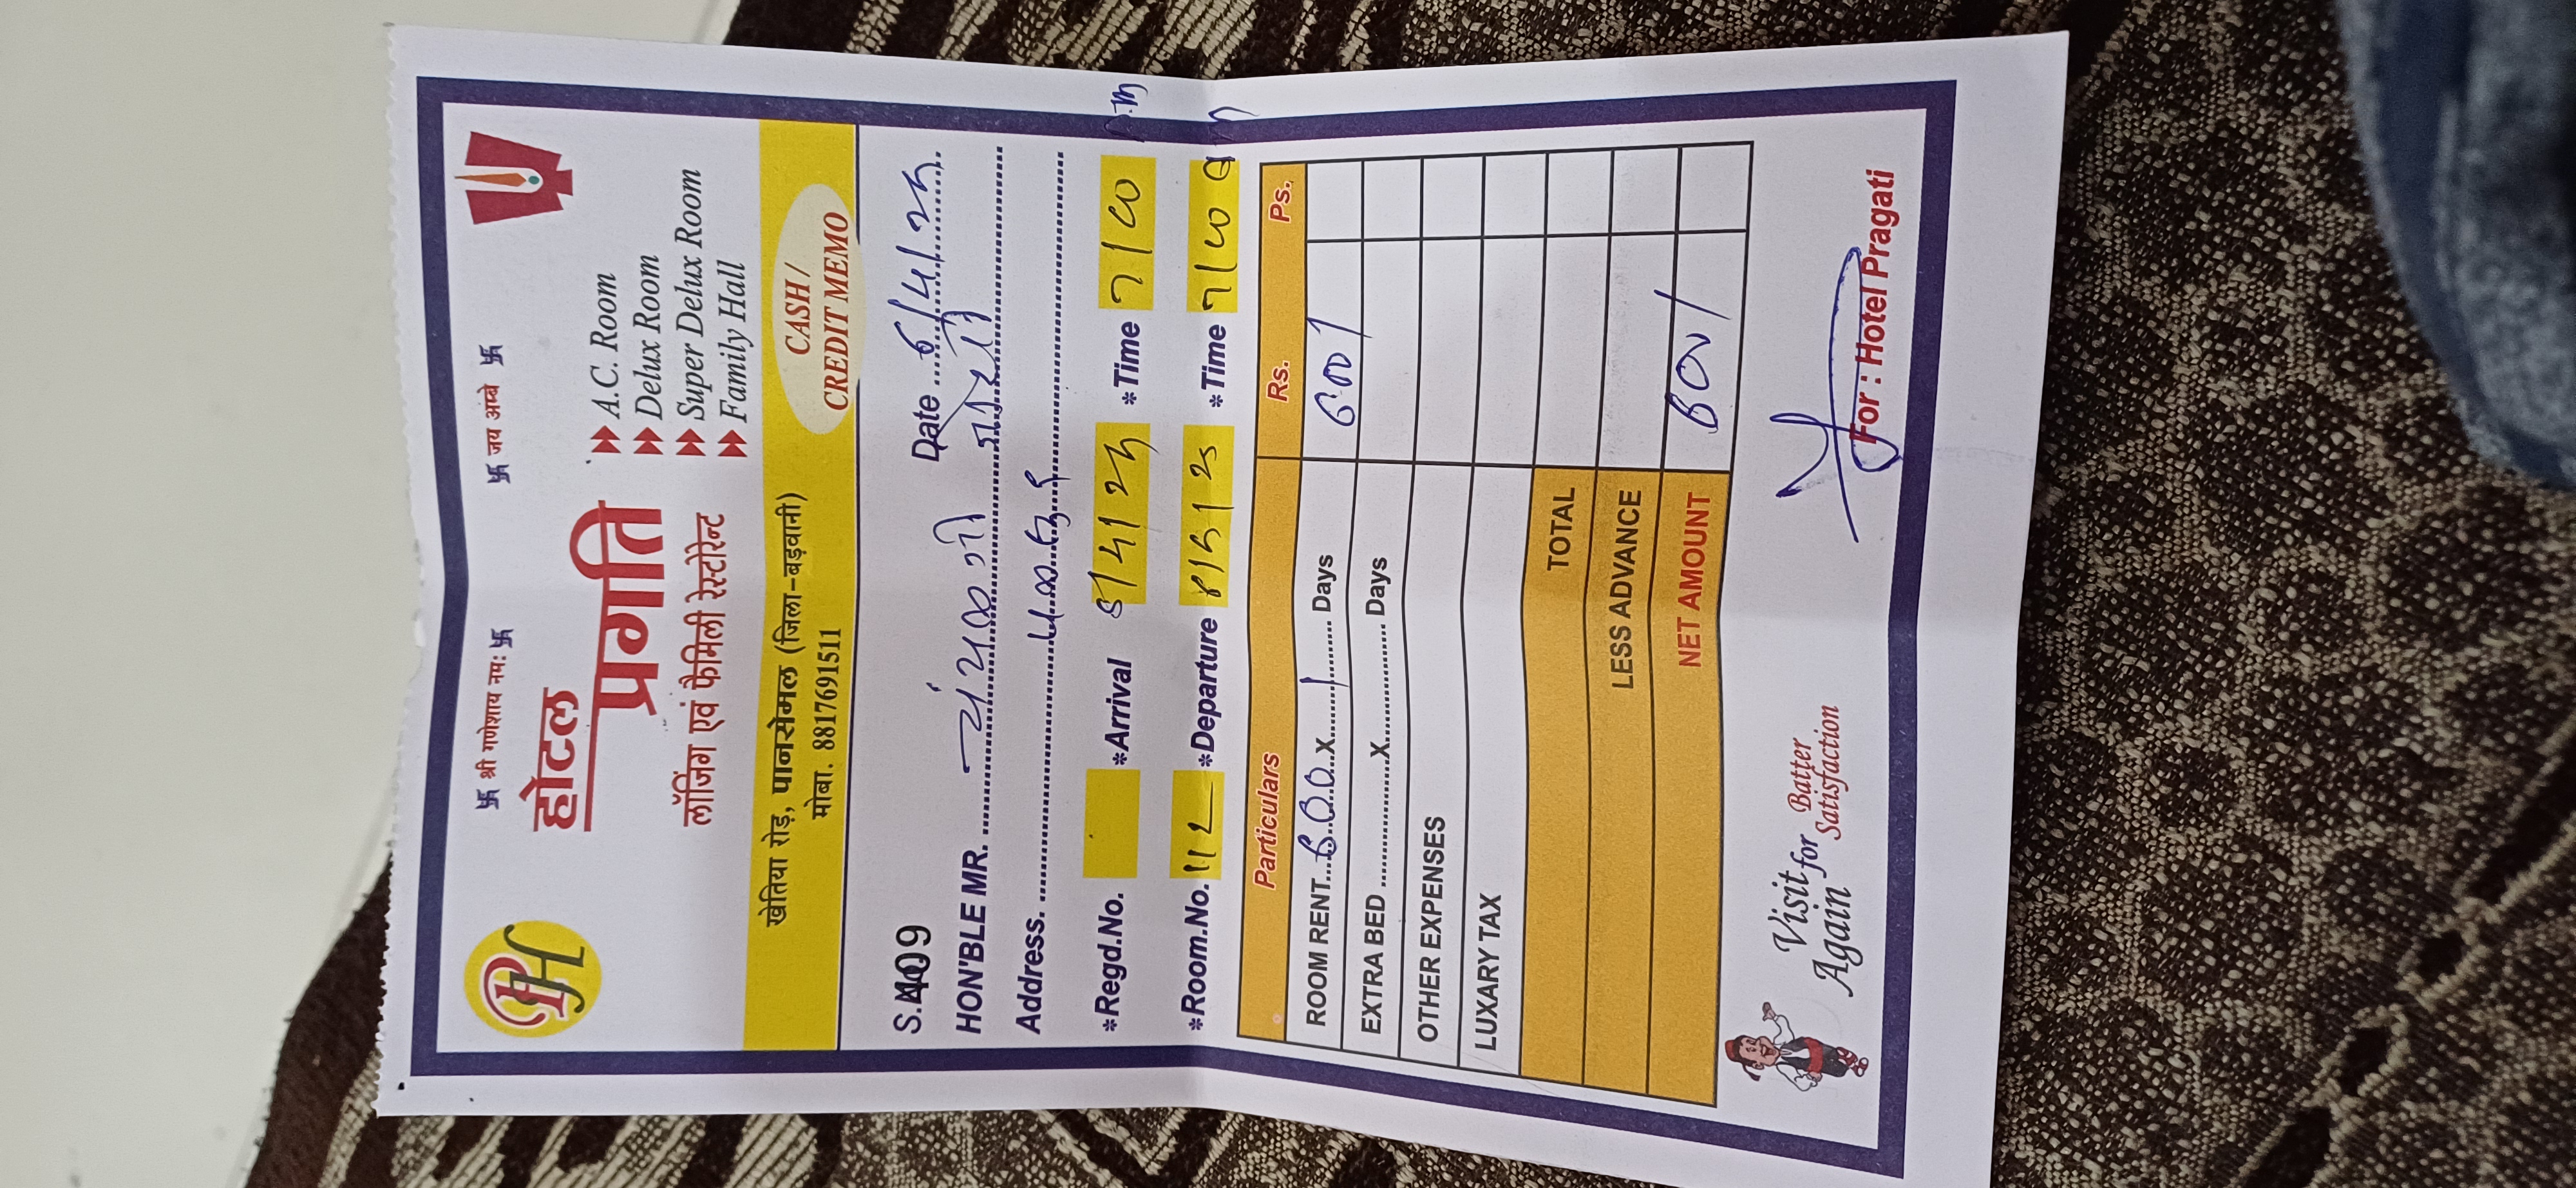 卐 श्री गणेशाय नमः 卐 卐 जय अम्बे 卐
PH
होटल
प्रगति
लॉजिंग एवं फैमिली रेस्टोरेन्ट
A.C. Room
Delux Room
Super Delux Room
Family Hall
खेतिया रोड़, पानसेमल (जिला-बड़वानी)
मोबा. 8817691511
CASH /
CREDIT MEMO
S. 409 Date
HON'BLE MR.
Address.
*Regd.No. *Arrival *Time
*Room.No. 112 *Departure *Time
Particulars Rs. Ps.
ROOM RENT 600 x 1 Days 600/
EXTRA BED x Days
OTHER EXPENSES
LUXARY TAX
TOTAL
LESS ADVANCE
NET AMOUNT 600/
Visit for Batter
Again Satisfaction
For : Hotel Pragati